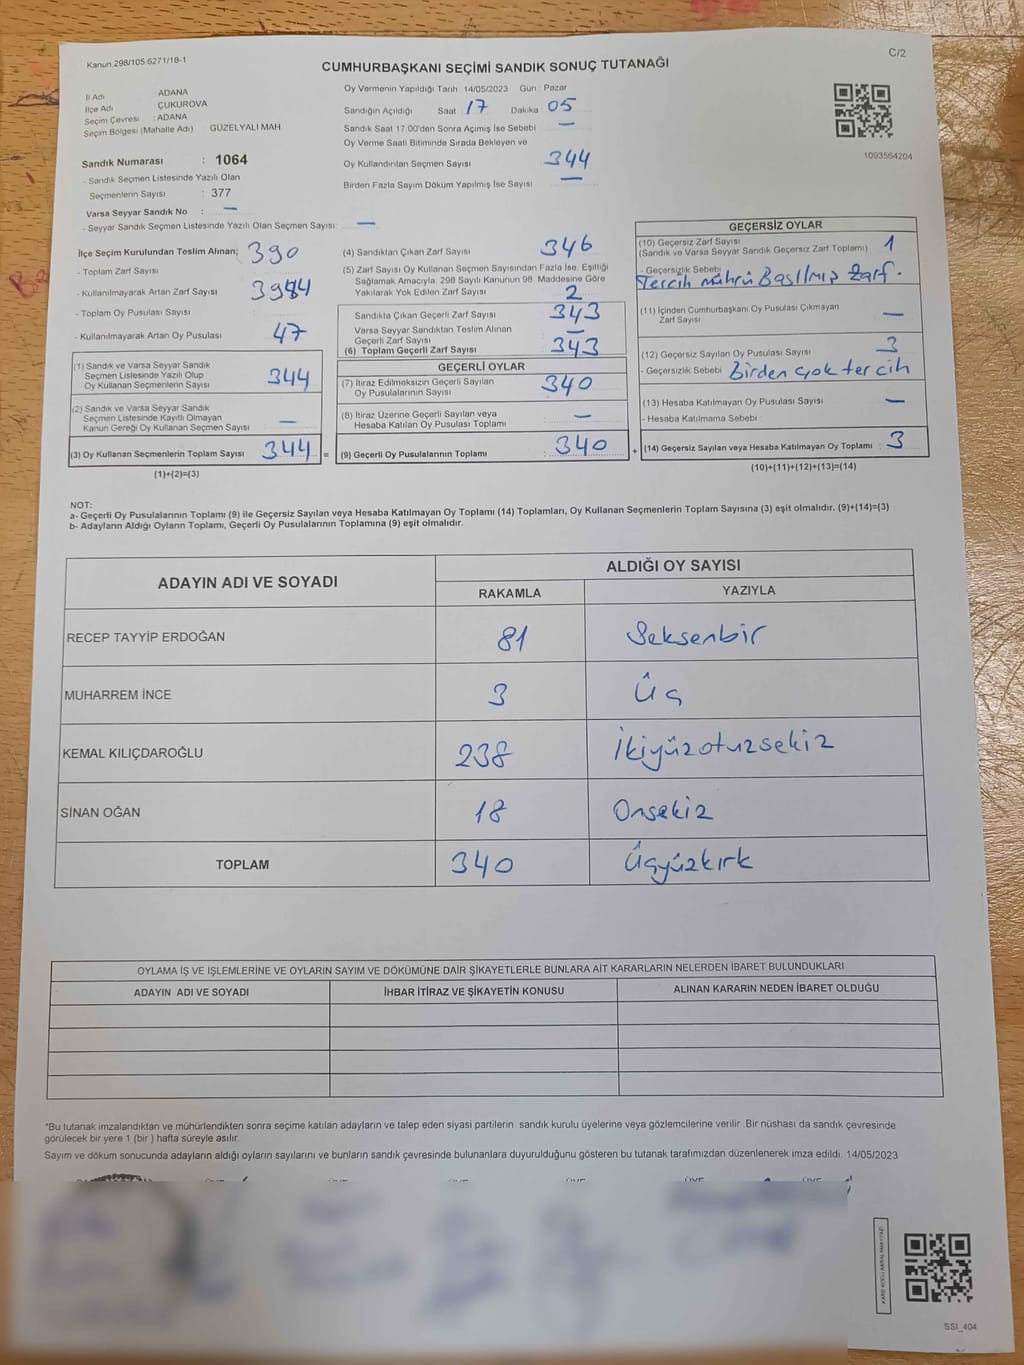 Kanun.298/105.6271/18-1
C/2
CUMHURBAŞKANI SEÇİMİ SANDIK SONUÇ TUTANAĞI
İl Adı ADANA
İlçe Adı ÇUKUROVA
Seçim Çevresi : ADANA
Seçim Bölgesi (Mahalle Adı) GÜZELYALI MAH
Sandık Numarası : 1064
- Sandık Seçmen Listesinde Yazılı Olan
Seçmenlerin Sayısı : 377
Varsa Seyyar Sandık No : —
- Seyyar Sandık Seçmen Listesinde Yazılı Olan Seçmen Sayısı: —
Oy Vermenin Yapıldığı Tarih 14/05/2023 Gün : Pazar
Sandığın Açıldığı Saat 17 Dakika : 05
Sandık Saat 17:00'den Sonra Açımış İse Sebebi —
Oy Verme Saati Bitiminde Sırada Bekleyen ve
Oy Kullandırılan Seçmen Sayısı 344
Birden Fazla Sayım Döküm Yapılmış İse Sayısı —
1093564204
İlçe Seçim Kurulundan Teslim Alınan; 390
- Toplam Zarf Sayısı
- Kullanılmayarak Artan Zarf Sayısı
- Toplam Oy Pusulası Sayısı
- Kullanılmayarak Artan Oy Pusulası 47
(1) Sandık ve Varsa Seyyar Sandık
Seçmen Listesinde Yazılı Olup
Oy Kullanan Seçmenlerin Sayısı 344
(2) Sandık ve Varsa Seyyar Sandık
Seçmen Listesinde Kayıtlı Olmayan
Kanun Gereği Oy Kullanan Seçmen Sayısı —
(3) Oy Kullanan Seçmenlerin Toplam Sayısı 344 =
(1)+(2)=(3)
(4) Sandıktan Çıkan Zarf Sayısı 346
(5) Zarf Sayısı Oy Kullanan Seçmen Sayısından Fazla İse, Eşitliği
Sağlamak Amacıyla; 298 Sayılı Kanunun 98. Maddesine Göre
Yakılarak Yok Edilen Zarf Sayısı 2
Sandıkta Çıkan Geçerli Zarf Sayısı 343
Varsa Seyyar Sandıktan Teslim Alınan
Geçerli Zarf Sayısı —
(6) Toplam Geçerli Zarf Sayısı 343
GEÇERLİ OYLAR
(7) İtiraz Edilmeksizin Geçerli Sayılan
Oy Pusulalarının Sayısı 340
(8) İtiraz Üzerine Geçerli Sayılan veya
Hesaba Katılan Oy Pusulası Toplamı —
(9) Geçerli Oy Pusulalarının Toplamı 340 +
GEÇERSİZ OYLAR
(10) Geçersiz Zarf Sayısı 1
(Sandık ve Varsa Seyyar Sandık Geçersiz Zarf Toplamı)
- Geçersizlik Sebebi
Tercih mührü Basılmış Zarf.
(11) İçinden Cumhurbaşkanı Oy Pusulası Çıkmayan
Zarf Sayısı —
(12) Geçersiz Sayılan Oy Pusulası Sayısı 3
- Geçersizlik Sebebi Birden çok tercih
(13) Hesaba Katılmayan Oy Pusulası Sayısı —
- Hesaba Katılmama Sebebi
(14) Geçersiz Sayılan veya Hesaba Katılmayan Oy Toplamı : 3
(10)+(11)+(12)+(13)=(14)
NOT:
a- Geçerli Oy Pusulalarının Toplamı (9) ile Geçersiz Sayılan veya Hesaba Katılmayan Oy Toplamı (14) Toplamları, Oy Kullanan Seçmenlerin Toplam Sayısına (3) eşit olmalıdır. (9)+(14)=(3)
b- Adayların Aldığı Oyların Toplamı, Geçerli Oy Pusulalarının Toplamına (9) eşit olmalıdır.
ADAYIN ADI VE SOYADI ALDIĞI OY SAYISI
RAKAMLA YAZIYLA
RECEP TAYYİP ERDOĞAN 81 Seksenbir
MUHARREM İNCE 3 Üç
KEMAL KILIÇDAROĞLU 238 İkiyüzotuzsekiz
SİNAN OĞAN 18 Onsekiz
TOPLAM 340 Üçyüzkırk
OYLAMA İŞ VE İŞLEMLERİNE VE OYLARIN SAYIM VE DÖKÜMÜNE DAİR ŞİKAYETLERLE BUNLARA AİT KARARLARIN NELERDEN İBARET BULUNDUKLARI
ADAYIN ADI VE SOYADI İHBAR İTİRAZ VE ŞİKAYETİN KONUSU ALINAN KARARIN NEDEN İBARET OLDUĞU
*Bu tutanak imzalandıktan ve mühürlendikten sonra seçime katılan adayların ve talep eden siyasi partilerin sandık kurulu üyelerine veya gözlemcilerine verilir .Bir nüshası da sandık çevresinde
görülecek bir yere 1 (bir ) hafta süreyle asılır.
Sayım ve döküm sonucunda adayların aldığı oyların sayılarını ve bunların sandık çevresinde bulunanlara duyurulduğunu gösteren bu tutanak tarafımızdan düzenlenerek imza edildi. 14/05/2023
SSI_404